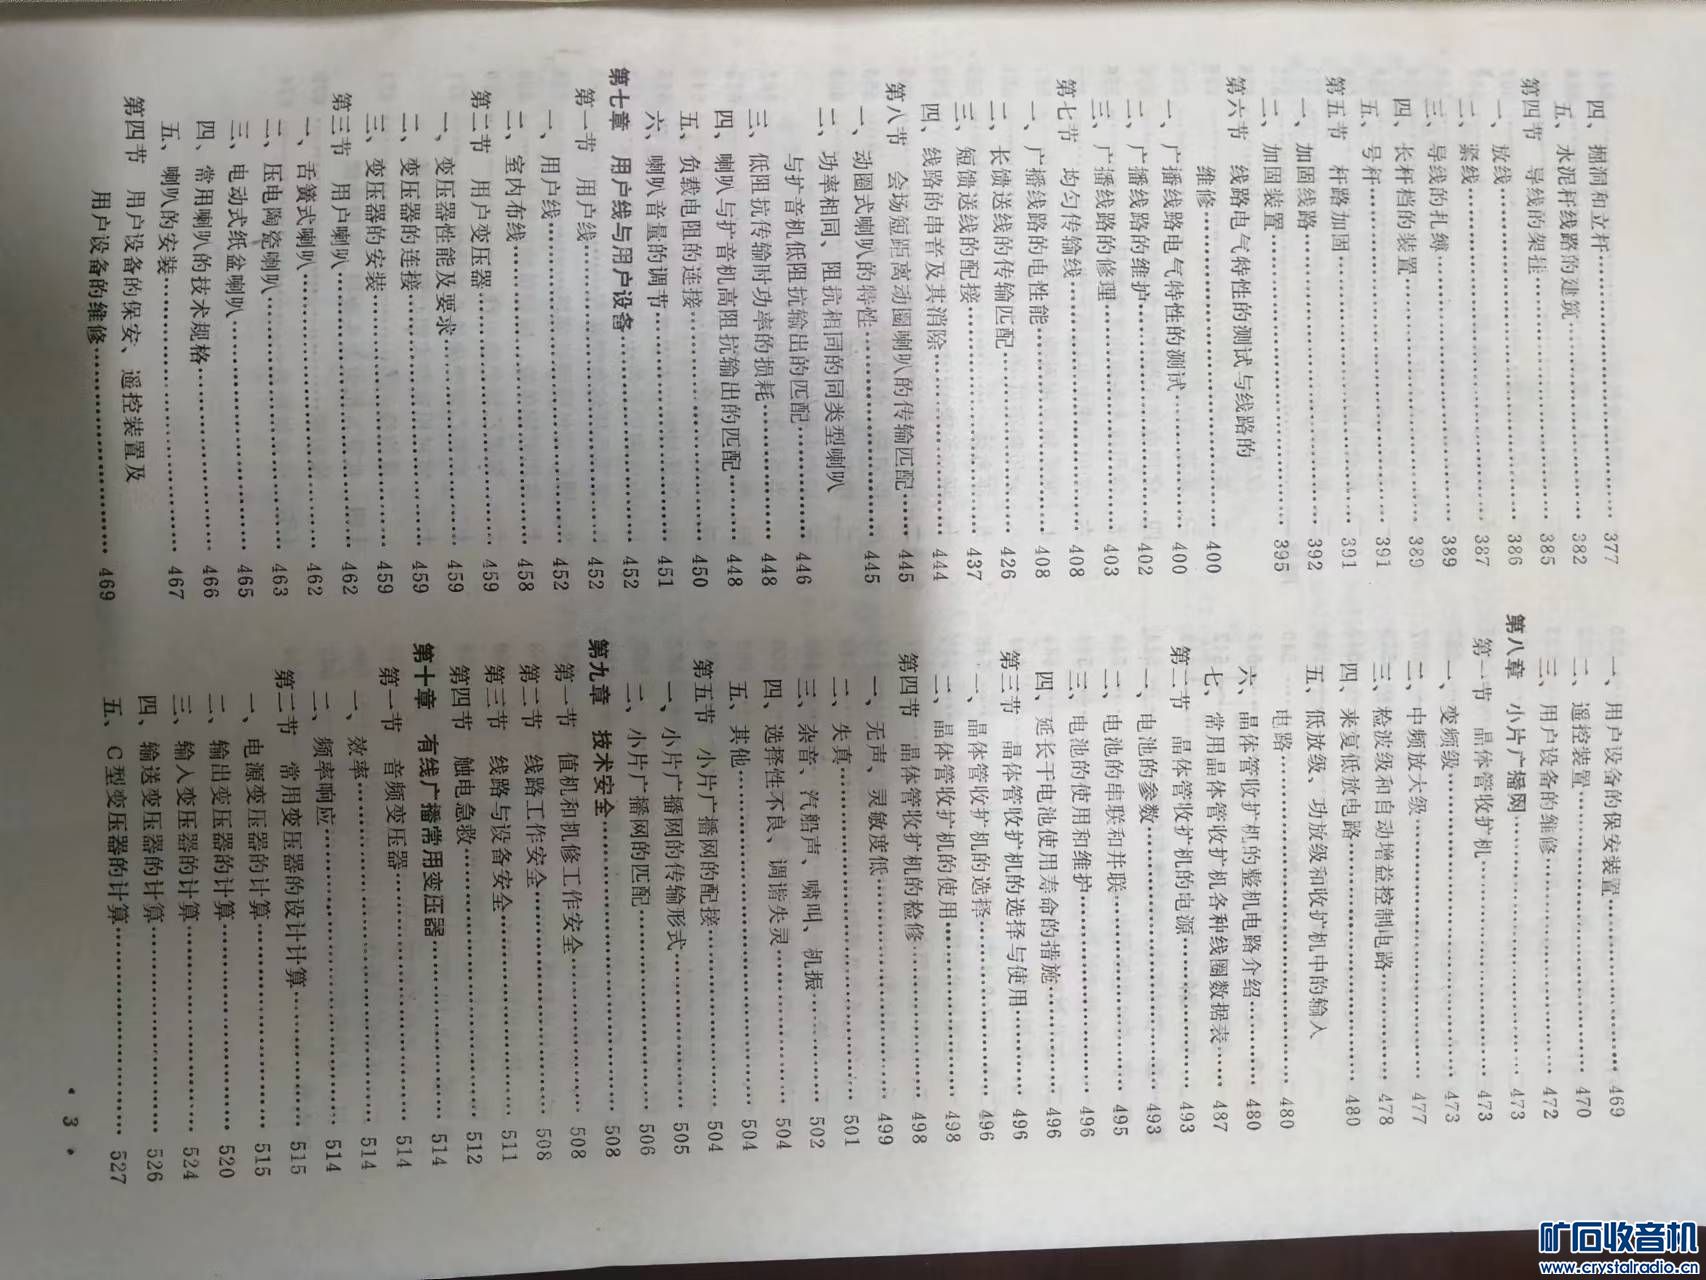 四、掘洞和立杆……………… 377
五、水泥杆线路的建筑……………… 382
第四节 导线的架挂……………… 385
一、放线……………… 386
二、紧线……………… 387
三、导线的扎缚……………… 389
四、长杆档的装置……………… 389
五、号杆……………… 391
第五节 杆路加固……………… 391
一、加固线路……………… 392
二、加固装置……………… 395
第六节 线路电气特性的测试与线路的
维修……………… 400
一、广播线路电气特性的测试……………… 400
二、广播线路的维护……………… 402
三、广播线路的修理……………… 403
第七节 均匀传输线……………… 408
一、广播线路的电性能……………… 408
二、长馈送线的传输匹配……………… 426
三、短馈送线的配接……………… 437
四、线路的串音及其消除……………… 444
第八节 会场短距离动圈喇叭的传输匹配…… 445
一、动圈式喇叭的特性……………… 445
二、功率相同、阻抗相同的同类型喇叭
与扩音机低阻抗输出的匹配……………… 446
三、低阻抗传输时功率的损耗……………… 448
四、喇叭与扩音机高阻抗输出的匹配……… 448
五、负载电阻的连接……………… 450
六、喇叭音量的调节……………… 451
第七章 用户线与用户设备……………… 452
第一节 用户线……………… 452
一、用户线……………… 452
二、室内布线……………… 458
第二节 用户变压器……………… 459
一、变压器性能及要求……………… 459
二、变压器的连接……………… 459
三、变压器的安装……………… 459
第三节 用户喇叭……………… 462
一、舌簧式喇叭……………… 462
二、压电陶瓷喇叭……………… 463
三、电动式纸盆喇叭……………… 465
四、常用喇叭的技术规格……………… 466
五、喇叭的安装……………… 467
第四节 用户设备的保安、遥控装置及
用户设备的维修……………… 469
一、用户设备的保安装置……………… 469
二、遥控装置……………… 470
三、用户设备的维修……………… 472
第八章 小片广播网……………… 473
第一节 晶体管收扩机……………… 473
一、变频级……………… 473
二、中频放大级……………… 477
三、检波级和自动增益控制电路……………… 478
四、来复低放电路……………… 480
五、低放级、功放级和收扩机中的输入
电路……………… 480
六、晶体管收扩机的整机电路介绍……… 480
七、常用晶体管收扩机各种线圈数据表…… 487
第二节 晶体管收扩机的电源……………… 493
一、电池的参数……………… 493
二、电池的串联和并联……………… 495
三、电池的使用和维护……………… 496
四、延长干电池使用寿命的措施……………… 496
第三节 晶体管收扩机的选择与使用……… 496
一、晶体管收扩机的选择……………… 496
二、晶体管收扩机的使用……………… 498
第四节 晶体管收扩机的检修……………… 498
一、无声、灵敏度低……………… 499
二、失真……………… 501
三、杂音、汽船声、啸叫、机振……………… 502
四、选择性不良、调谐失灵……………… 504
五、其他……………… 504
第五节 小片广播网的配接……………… 504
一、小片广播网的传输形式……………… 505
二、小片广播网的匹配……………… 506
第九章 技术安全……………… 508
第一节 值机和机修工作安全……………… 508
第二节 线路工作安全……………… 508
第三节 线路与设备安全……………… 511
第四节 触电急救……………… 512
第十章 有线广播常用变压器……………… 514
第一节 音频变压器……………… 514
一、效率……………… 514
二、频率响应……………… 514
第二节 常用变压器的设计计算……………… 515
一、电源变压器的计算……………… 515
二、输出变压器的计算……………… 520
三、输入变压器的计算……………… 524
四、输送变压器的计算……………… 526
五、C型变压器的计算……………… 527
· 3 ·
矿石收音机
www.crystalradio.cn